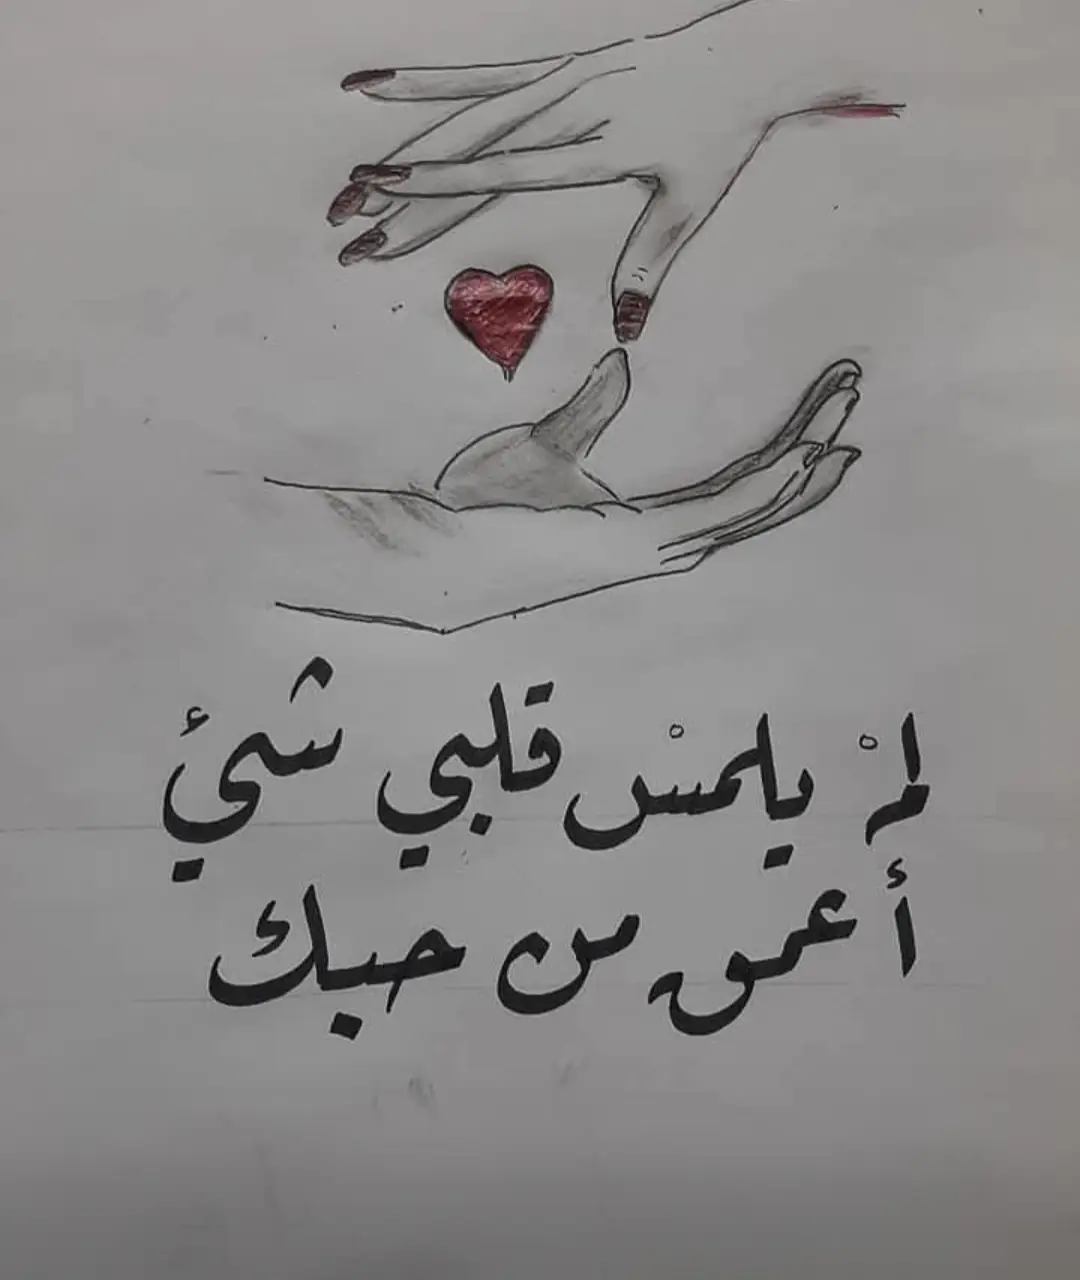 لمْ يلمسْ قلبي شيئ
أعمق من حبك